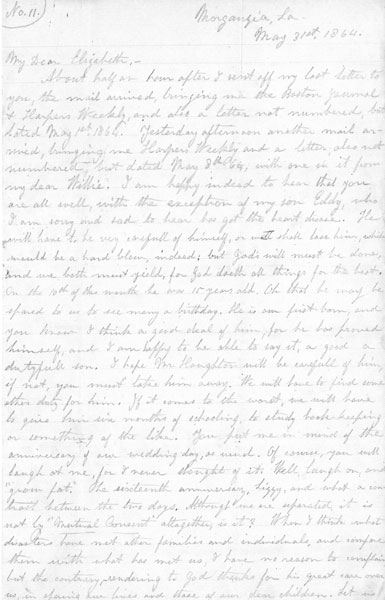 No. 11.
Morganzia, La.
May 31st, 1864.
My Dear Elizabeth,-
About half an hour after I sent off my last letter to
you, the mail arrived, bringing me the Boston Journal
& Harpers Weekly, and also a letter not numbered, but
dated May 1st 1864. Yesterday afternoon another mail ar-
rived, bringing me Harpers Weekly and a letter, also not
numbered, but dated May 8th 64, with one in it from
my dear Willie. I am happy indeed to hear that you
are all well, with the exception of my son Eddy, who
I am sorry and sad to hear has got the heart disease. He
will have to be very carefull of himself, or we shall lose him, which
would be a hard blow, indeed; but God's will must be done,
and we both must yield, for God doeth all things for the best.
On the 10th of this month he was 15 years old. Oh that he may be
spared to us to see many a birthday. He is our first born, and
you know I think a good deal of him, for he has proved
himself, and I am happy to be able to say it, a good and
dutyfull son. I hope Mr. Houghton will be carefull of him,
if not, you must take him away. We will have to find some
other duty for him. If it comes to the worst, we will have
to give him six months of schooling, to study book keeping,
or something of the like. You put me in mind of the
anniversary of our wedding day, as usual. Of course, you will
laugh at me, for I never thought of it. Well, laugh on, and
"grow fat." The sixteenth anniversary, Lizzy, and what a con-
trast between the two days. Although we are separated, it is
not by "Mutual Consent" altogether, is it? When I think what
disasters have met other families and individuals, and compare
them with what has met us, I have no reason to complain
but the contrary, rendering to God thanks for his great care over
us, in sparing our lives and those of our dear children. Let us